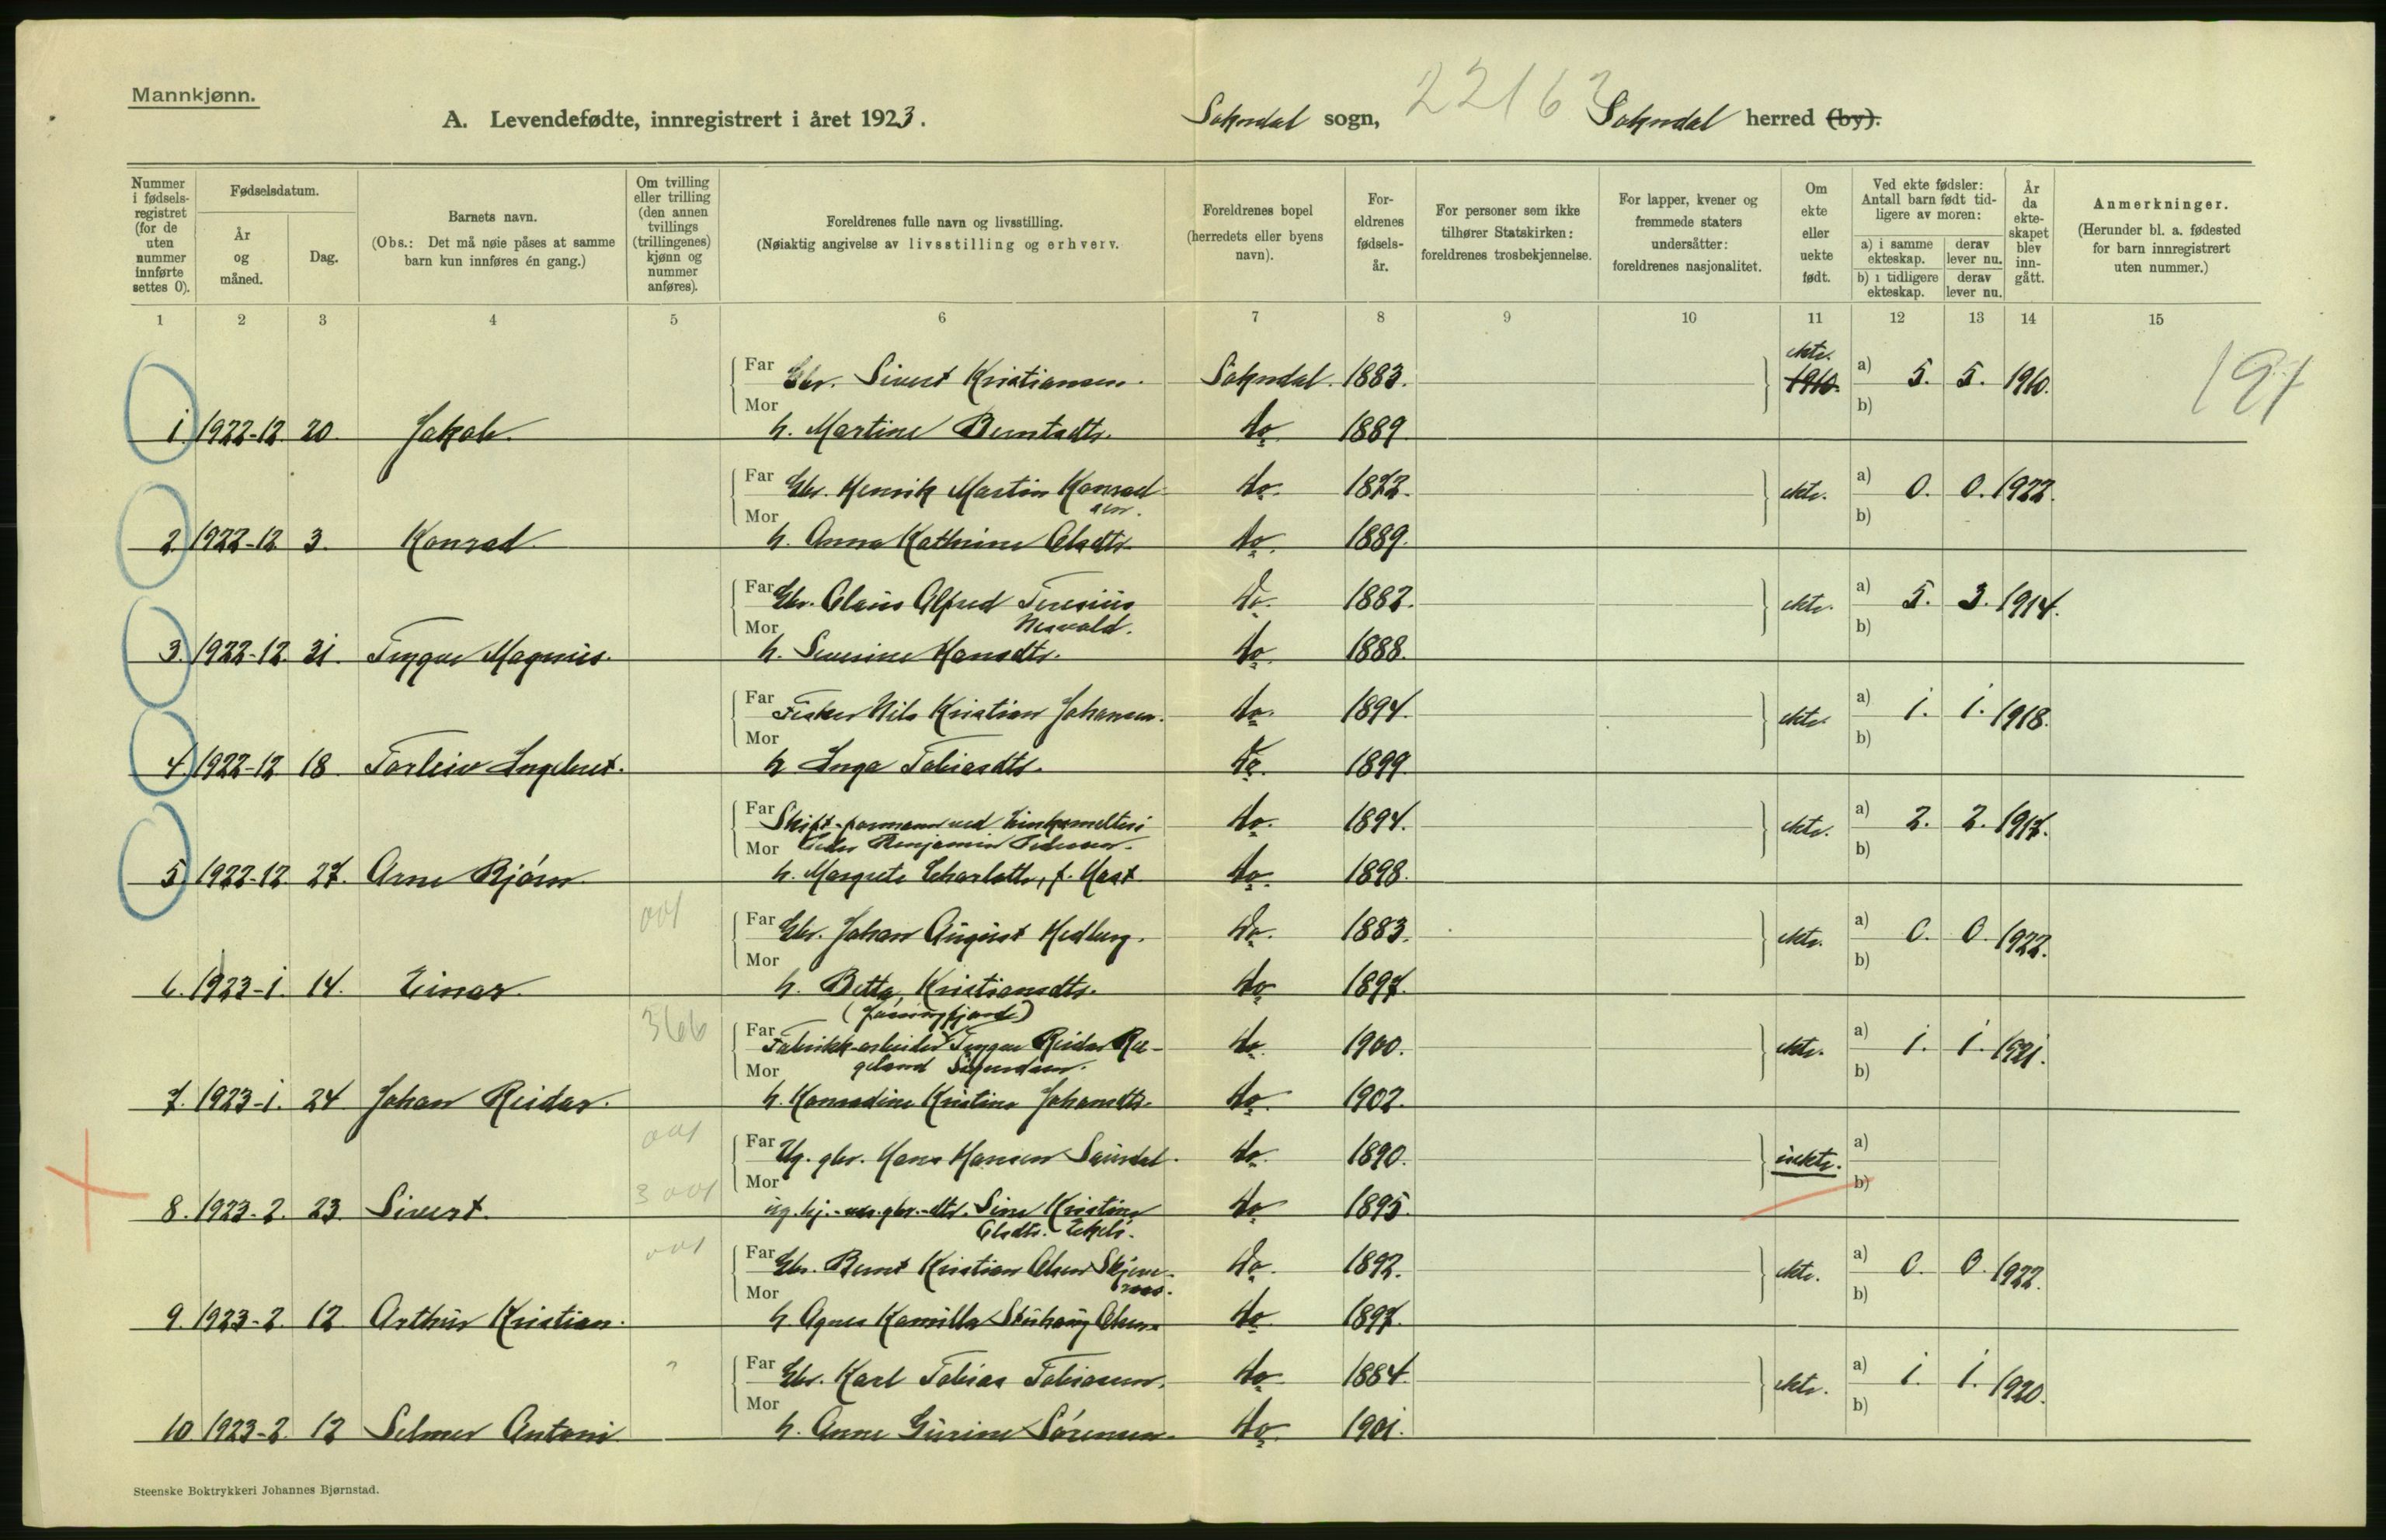 Mannkjønn.
A. Levendefødte, innregistrert i året 1923. Sokndal sogn, 22163 Sokndal herred (by).
Nummer i fødsels-registret (for de uten nummer innførte settes 0).
Fødselsdatum.
År og måned.
Dag.
Barnets navn.
(Obs.: Det må nøie påses at samme barn kun innføres én gang.)
Om tvilling eller trilling (den annen tvillings (trillingenes) kjønn og nummer anføres).
Foreldrenes fulle navn og livsstilling.
(Nøiaktig angivelse av livsstilling og erhverv.
Foreldrenes bopel (herredets eller byens navn).
For-eldrenes fødsels-år.
For personer som ikke tilhører Statskirken: foreldrenes trosbekjennelse.
For lapper, kvener og fremmede staters undersåtter: foreldrenes nasjonalitet.
Om ekte eller uekte født.
Ved ekte fødsler: Antall barn født tid-ligere av moren:
a) i samme ekteskap.
derav lever nu.
b) i tidligere ekteskap.
derav lever nu.
År da ekte-skapet blev inn-gått.
Anmerkninger.
(Herunder bl. a. fødested for barn innregistrert uten nummer.)
1 2 3 4 5 6 7 8 9 10 11 12 13 14 15
Far Gbr. Sivert Kristiansen. Sokndal. 1883. ekte. 1910. a) 5. 5. 1910. 191
1. 1922-12. 20. Jakob. Mor h. Martine Berntsdtr. do 1889. b)
Far Gbr. Henrik Martin Konrad-sen. do. 1872. ekte. a) 0. 0. 1922.
2. 1922-12 3. Konrad. Mor h. Anna Kathrine Olsdtr. do. 1889. b)
Far Gbr. Olaus Alfred Teresius Nesvald. do. 1882. ekte. a) 5. 3. 1914.
3. 1922-12. 31. Trygve Magnus. Mor h. Severine Hansdtr. do. 1888. b)
Far Fisker Nils Kristian Johansen. do. 1894. ekte. a) 1. 1. 1918.
4. 1922-12 18. Torleiv Ingebret. Mor h. Inga Tobiasdtr. do. 1899. b)
Far Skift-formann ved Zinksmelteri Peder Benjamin Pedersen. do. 1894. ekte. a) 2. 2. 1917.
5. 1922-12. 27. Arne Bjørn. Mor h. Margrete Charlotte, f. Hast. do. 1898. b)
001
Far Gbr. Johan August Hedberg. do. 1883. ekte. a) 0. 0. 1922.
6. 1923-1. 14. Einar. Mor h. Betta Kristiansdtr. do 1897. b)
366 (Jøssingfjord)
Far Fabrikk-arbeider Trygve Reidar Re-geland Sigurdsen. do. 1900. ekte. a) 1. 1. 1921.
7. 1923-1. 24 Johan Reidar. Mor h. Konradine Kristine Johansdtr. do. 1902. b)
001
Far Ug. gbr. Hans Hansen Saurdal. do. 1890. uekte. a)
8. 1923-2. 23. Sivert. 3 001 Mor ug. hj.-vær. gbr.-dtr. Sine Kristine Olsdtr. do 1895. b)
001
Far Gbr. Bernt Kristian Olsen do. 1892. ekte. a) 0. 0. 1922.
9. 1923-2. 12. Arthur Kristian. Mor h. Agnes Kamilla Olsen do. 1897. b)
Far Gbr. Karl Tobias Tobiasen. do. 1884. ekte. a) 1. 1. 1920.
10. 1923-2. 12 Selmer Antoni. Mor h. Anne Gurine Sørensen. do. 1901. b)
Steenske Boktrykkeri Johannes Bjørnstad.